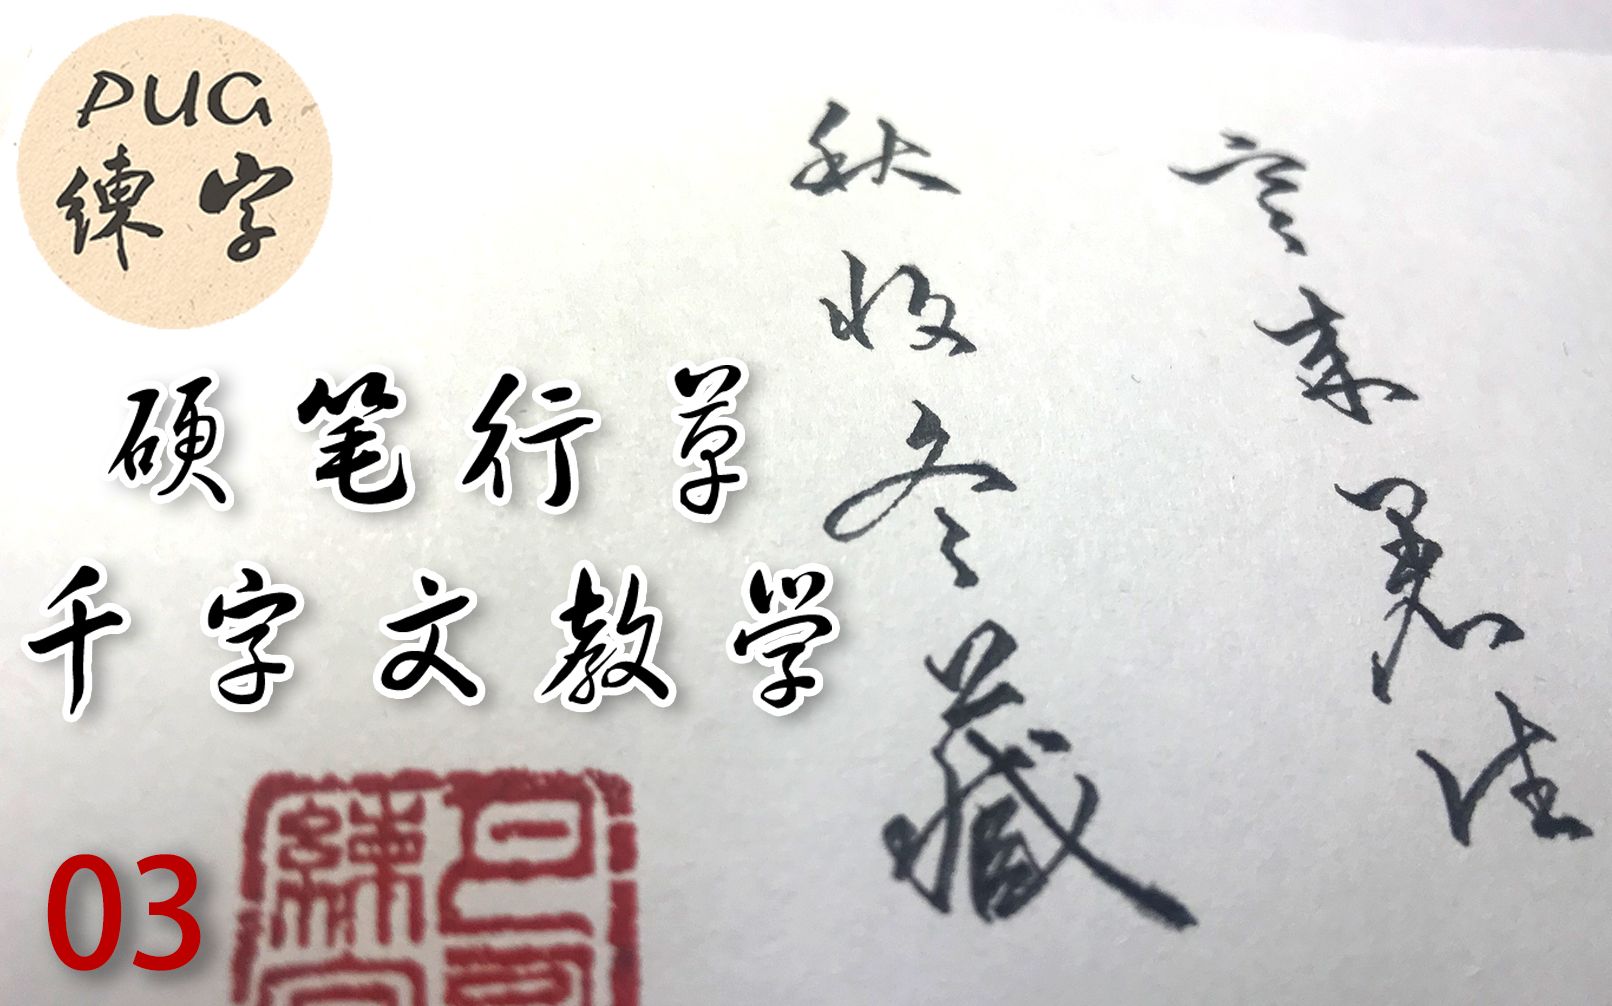 PUG
練字
硬笔行草
千字文教学
03
寒来暑往
秋收冬藏